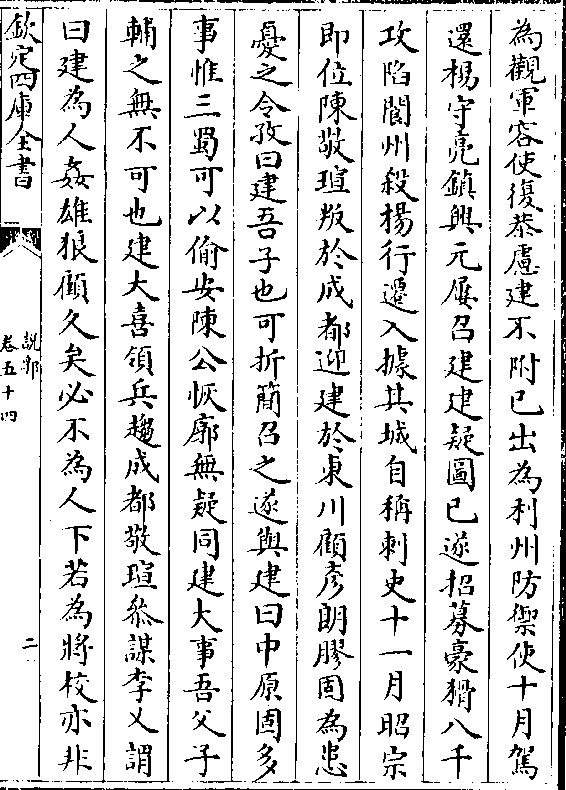 為觀軍容使復恭慮建不附已出為利州防禦使十月駕
還楊守亮鎮興元屢召建建疑圖已遂招募豪猾八千
攻陷閬州殺楊行遷入據其城自稱刺史十一月昭宗
即位陳敬瑄叛於成都迎建於東川顧彥朗膠固為患
憂之令孜曰建吾子也可折簡召之遂與建曰中原固多
事惟三蜀可以偷安陳公恢廓無疑同建大事吾父子
輔之無不可也建大喜領兵趨成都敬瑄叅謀李乂謂
曰建為人姦雄狼顧久矣必不為人下若為將校亦非
欽定四庫全書
說郛
卷五十四
二